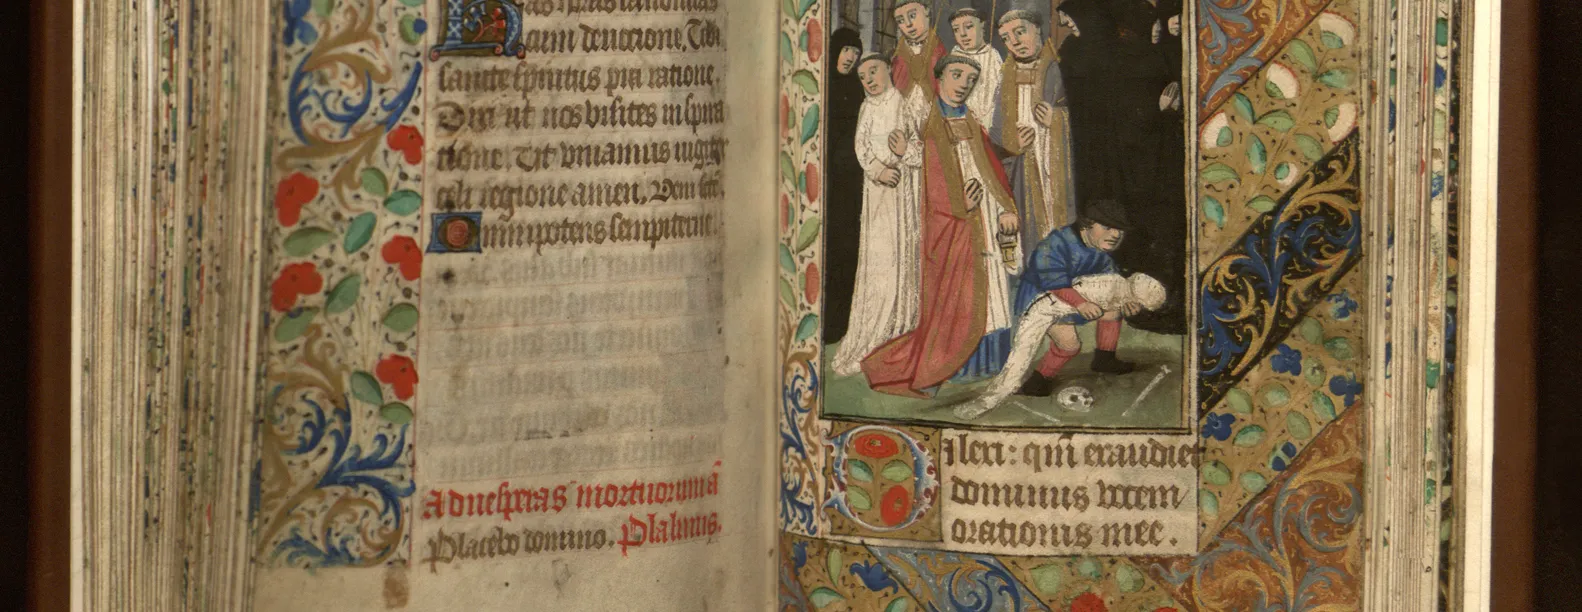 has horas canonicas
cum deuocione, Tibi
sancte spiritus pia ratione.
Dixi ut nos visites inspira
tione. Et viuamus iugiter
celi regione amen. Veni sce.
Omnipotens sempiterne.
Ad uesperas mortuorum añ
Placebo domino. Psalmus.
Dilexi: qm̄ exaudiet
dominus vocem
orationis mee.